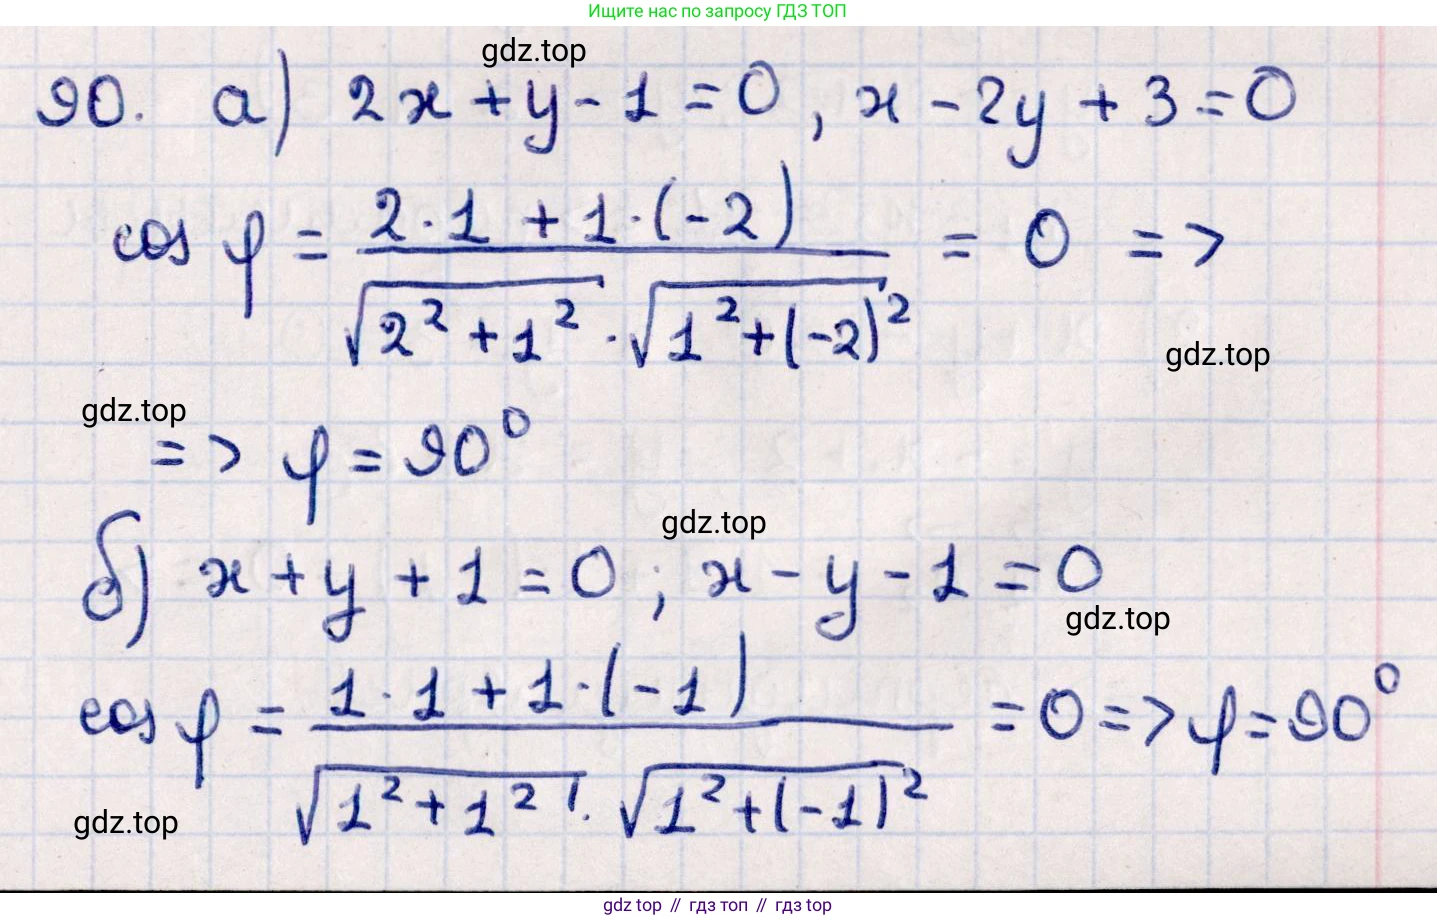 Ищите нас по запросу ГДЗ ТОП
gdz.top
90. а) 2x + y - 1 = 0, x - 2y + 3 = 0
cos φ = (2·1 + 1·(-2)) / (√(2² + 1²) · √(1² + (-2)²)) = 0 =>
gdz.top
gdz.top
=> φ = 90°
gdz.top
б) x + y + 1 = 0; x - y - 1 = 0
gdz.top
cos φ = (1·1 + 1·(-1)) / (√(1² + 1²) · √(1² + (-1)²)) = 0 => φ = 90°
gdz.top
gdz top // гдз топ // гдз top